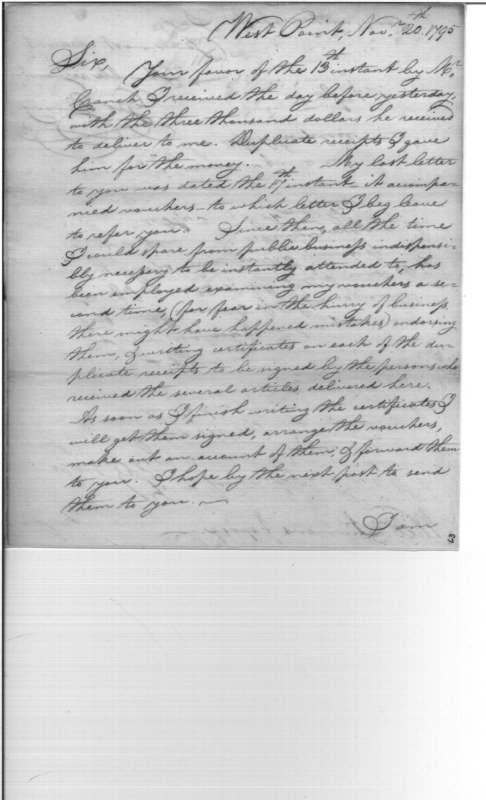 West Point, Nov.r 20.th 1795
Sir,
Your favor of the 13th instant by Mr.
Cranch I received the day before yesterday,
with the three thousand dollars he received
to deliver to me. Duplicate receipts I gave
him for the money. My last letter
to you was dated the instant it accompa-
nied vouchers to which letter I beg leave
to refer you. Since then, all the time
I could spare from public business indispensi-
bly necessary to be instantly attended to, has
been employed examining my vouchers a se-
cond time, (for fear in the hurry of business
there might have happened mistakes) endorsing
them, & writing certificates on each of the du-
plicate receipts to be signed by the persons who
received the several articles delivered here.
As soon as I finish writing the certificates I
will get them signed, arrange the vouchers,
make out an account of them, & forward them
to you. I hope by the next post to send
them to you.
I am